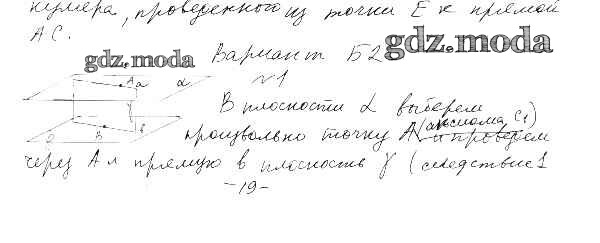 нумера, проведенного из точки E к прямой
AC.
gdz.moda Вариант Б2 gdz.moda
№1
A a α
γ
В плоскости α выберем
B b
произвольно точку A (аксиома C1) и проведем
через A и прямую в плоскость γ (следствие 1
-19-